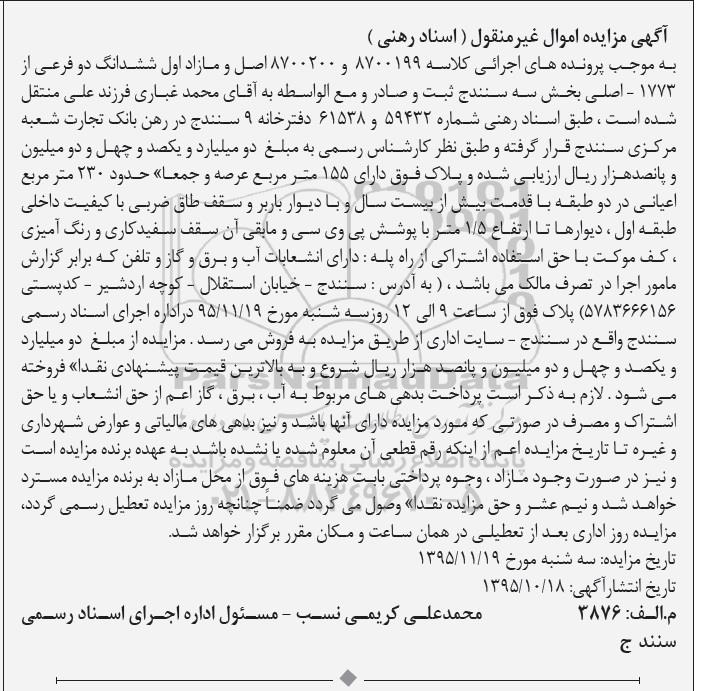 آگهی مزایده اموال غیرمنقول ( اسناد رهنی )
به موجب پرونده های اجرائی کلاسه ۸۷۰۰۱۹۹ و ۸۷۰۰۲۰۰ اصل و مازاد اول ششدانگ دو فرعی از
۱۷۷۳ - اصلی بخش سه سنندج ثبت و صادر و مع الواسطه به آقای محمد غباری فرزند علی منتقل
شده است ، طبق اسناد رهنی شماره ۵۹۴۳۲ و ۶۱۵۳۸ دفترخانه ۹ سنندج در رهن بانک تجارت شعبه
مرکزی سنندج قرار گرفته و طبق نظر کارشناس رسمی به مبلغ دو میلیارد و یکصد و چهل و دو میلیون
و پانصدهزار ریال ارزیابی شده و پلاک فوق دارای ۱۵۵ متر مربع عرصه و جمعا» حدود ۲۳۰ متر مربع
اعیانی در دو طبقه با قدمت بیش از بیست سال و با دیوار باربر و سقف طاق ضربی با کیفیت داخلی
طبقه اول ، دیوارها تا ارتفاع ۱/۵ متر با پوشش پی وی سی و مابقی آن سقف سفیدکاری و رنگ آمیزی
، کف موکت با حق استفاده اشتراکی از راه پله : دارای انشعابات آب و برق و گاز و تلفن که برابر گزارش
مامور اجرا در تصرف مالک می باشد ، ( به آدرس : سنندج - خیابان استقلال - کوچه اردشیر - کدپستی
۵۷۸۳۶۶۶۱۵۶) پلاک فوق از ساعت ۹ الی ۱۲ روزسه شنبه مورخ ۹۵/۱۱/۱۹ دراداره اجرای اسناد رسمی
سنندج واقع در سنندج - سایت اداری از طریق مزایده به فروش می رسد . مزایده از مبلغ دو میلیارد
و یکصد و چهل و دو میلیون و پانصد هزار ریال شروع و به بالاترین قیمت پیشنهادی نقدا» فروخته
می شود . لازم به ذکر است پرداخت بدهی های مربوط به آب ، برق ، گاز اعم از حق انشعاب و یا حق
اشتراک و مصرف در صورتی که مورد مزایده دارای آنها باشد و نیز بدهی های مالیاتی و عوارض شهرداری
و غیره تا تاریخ مزایده اعم از اینکه رقم قطعی آن معلوم شده یا نشده باشد به عهده برنده مزایده است
و نیز در صورت وجود مازاد ، وجوه پرداختی بابت هزینه های فوق از محل مازاد به برنده مزایده مسترد
خواهد شد و نیم عشر و حق مزایده نقدا» وصول می گردد ضمناً چنانچه روز مزایده تعطیل رسمی گردد،
مزایده روز اداری بعد از تعطیلی در همان ساعت و مکان مقرر برگزار خواهد شد.
تاریخ مزایده: سه شنبه مورخ ۱۳۹۵/۱۱/۱۹
تاریخ انتشارآگهی: ۱۳۹۵/۱۰/۱۸
م.الف: ۳۸۷۶ محمدعلی کریمی نسب - مسئول اداره اجرای اسناد رسمی
سنند ج
ParsNamadData
پایگاه اطلاع رسانی مناقصه و مزایده
۰۲۱-۸۸۳۴۹۶۷۰-۵